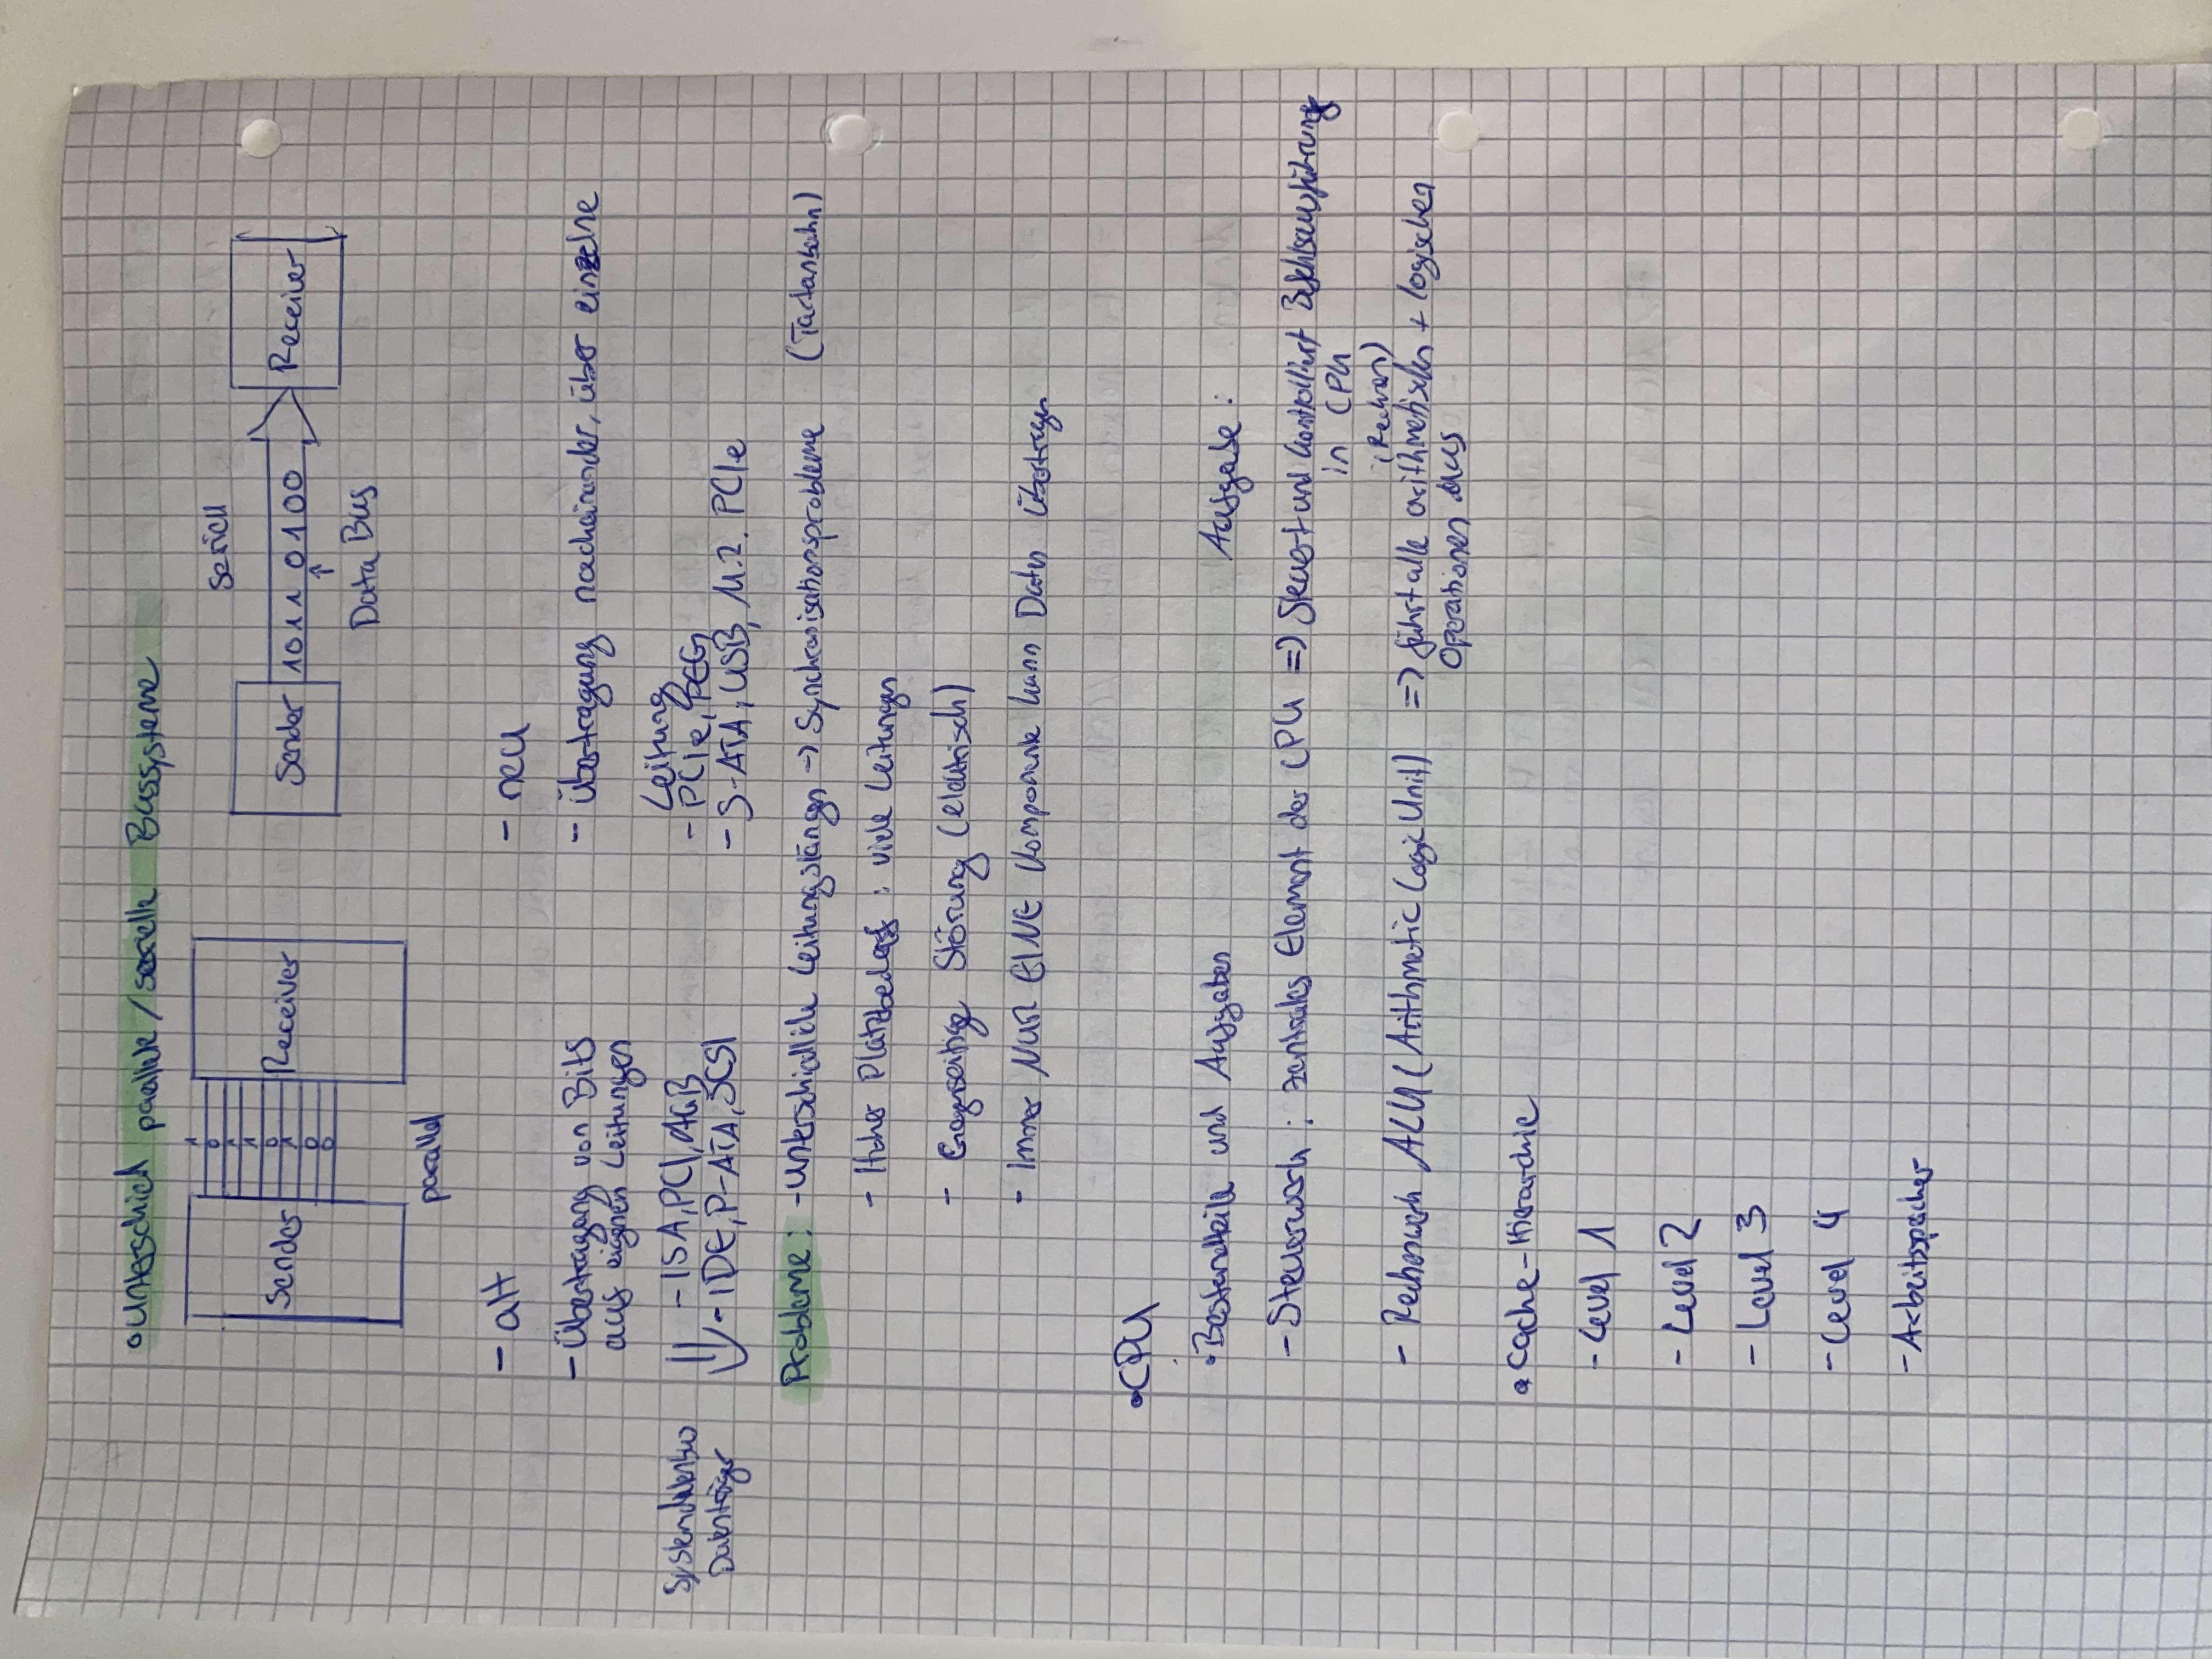 Unterschied parallele/serielle Bussysteme
Sender
1
0
1
1
0
1
0
0
Receiver
parallel
Seriell
Sender
1011 0100
Receiver
↑
Data Bus
- alt
- Übertragung von Bits
aus eignen Leitungen
- ISA, PCI, AGB
- IDE, P-ATA, SCSI
Datenträger
- neu
- Übertragung nacheinander, über einzelne
Leitung
- PCIe, PEG
- S-ATA, USB, M.2. PCIe
Probleme: - Unterschiedliche Leitungslängen -> Synchronisationsprobleme (Tartanbahn)
- Hoher Platzbedarf: viele Leitungen
- Gegenseitige Störung (elektrisch)
- Immer NUR EINE Komponente kann Daten übertragen
• CPU
• Bestandteile und Aufgaben
Aufgabe:
- Steuerwerk: zentrales Element der CPU => Steuert und kontrolliert Befehlsausführung
in CPU
- Rechenwerk ALU (Arithmetic Logic Unit) => führt alle arithmetischen + logischen
(Rechnen)
Operationen aus
• Cache-Hierarchie
- Level 1
- Level 2
- Level 3
- Level 4
- Arbeitsspeicher